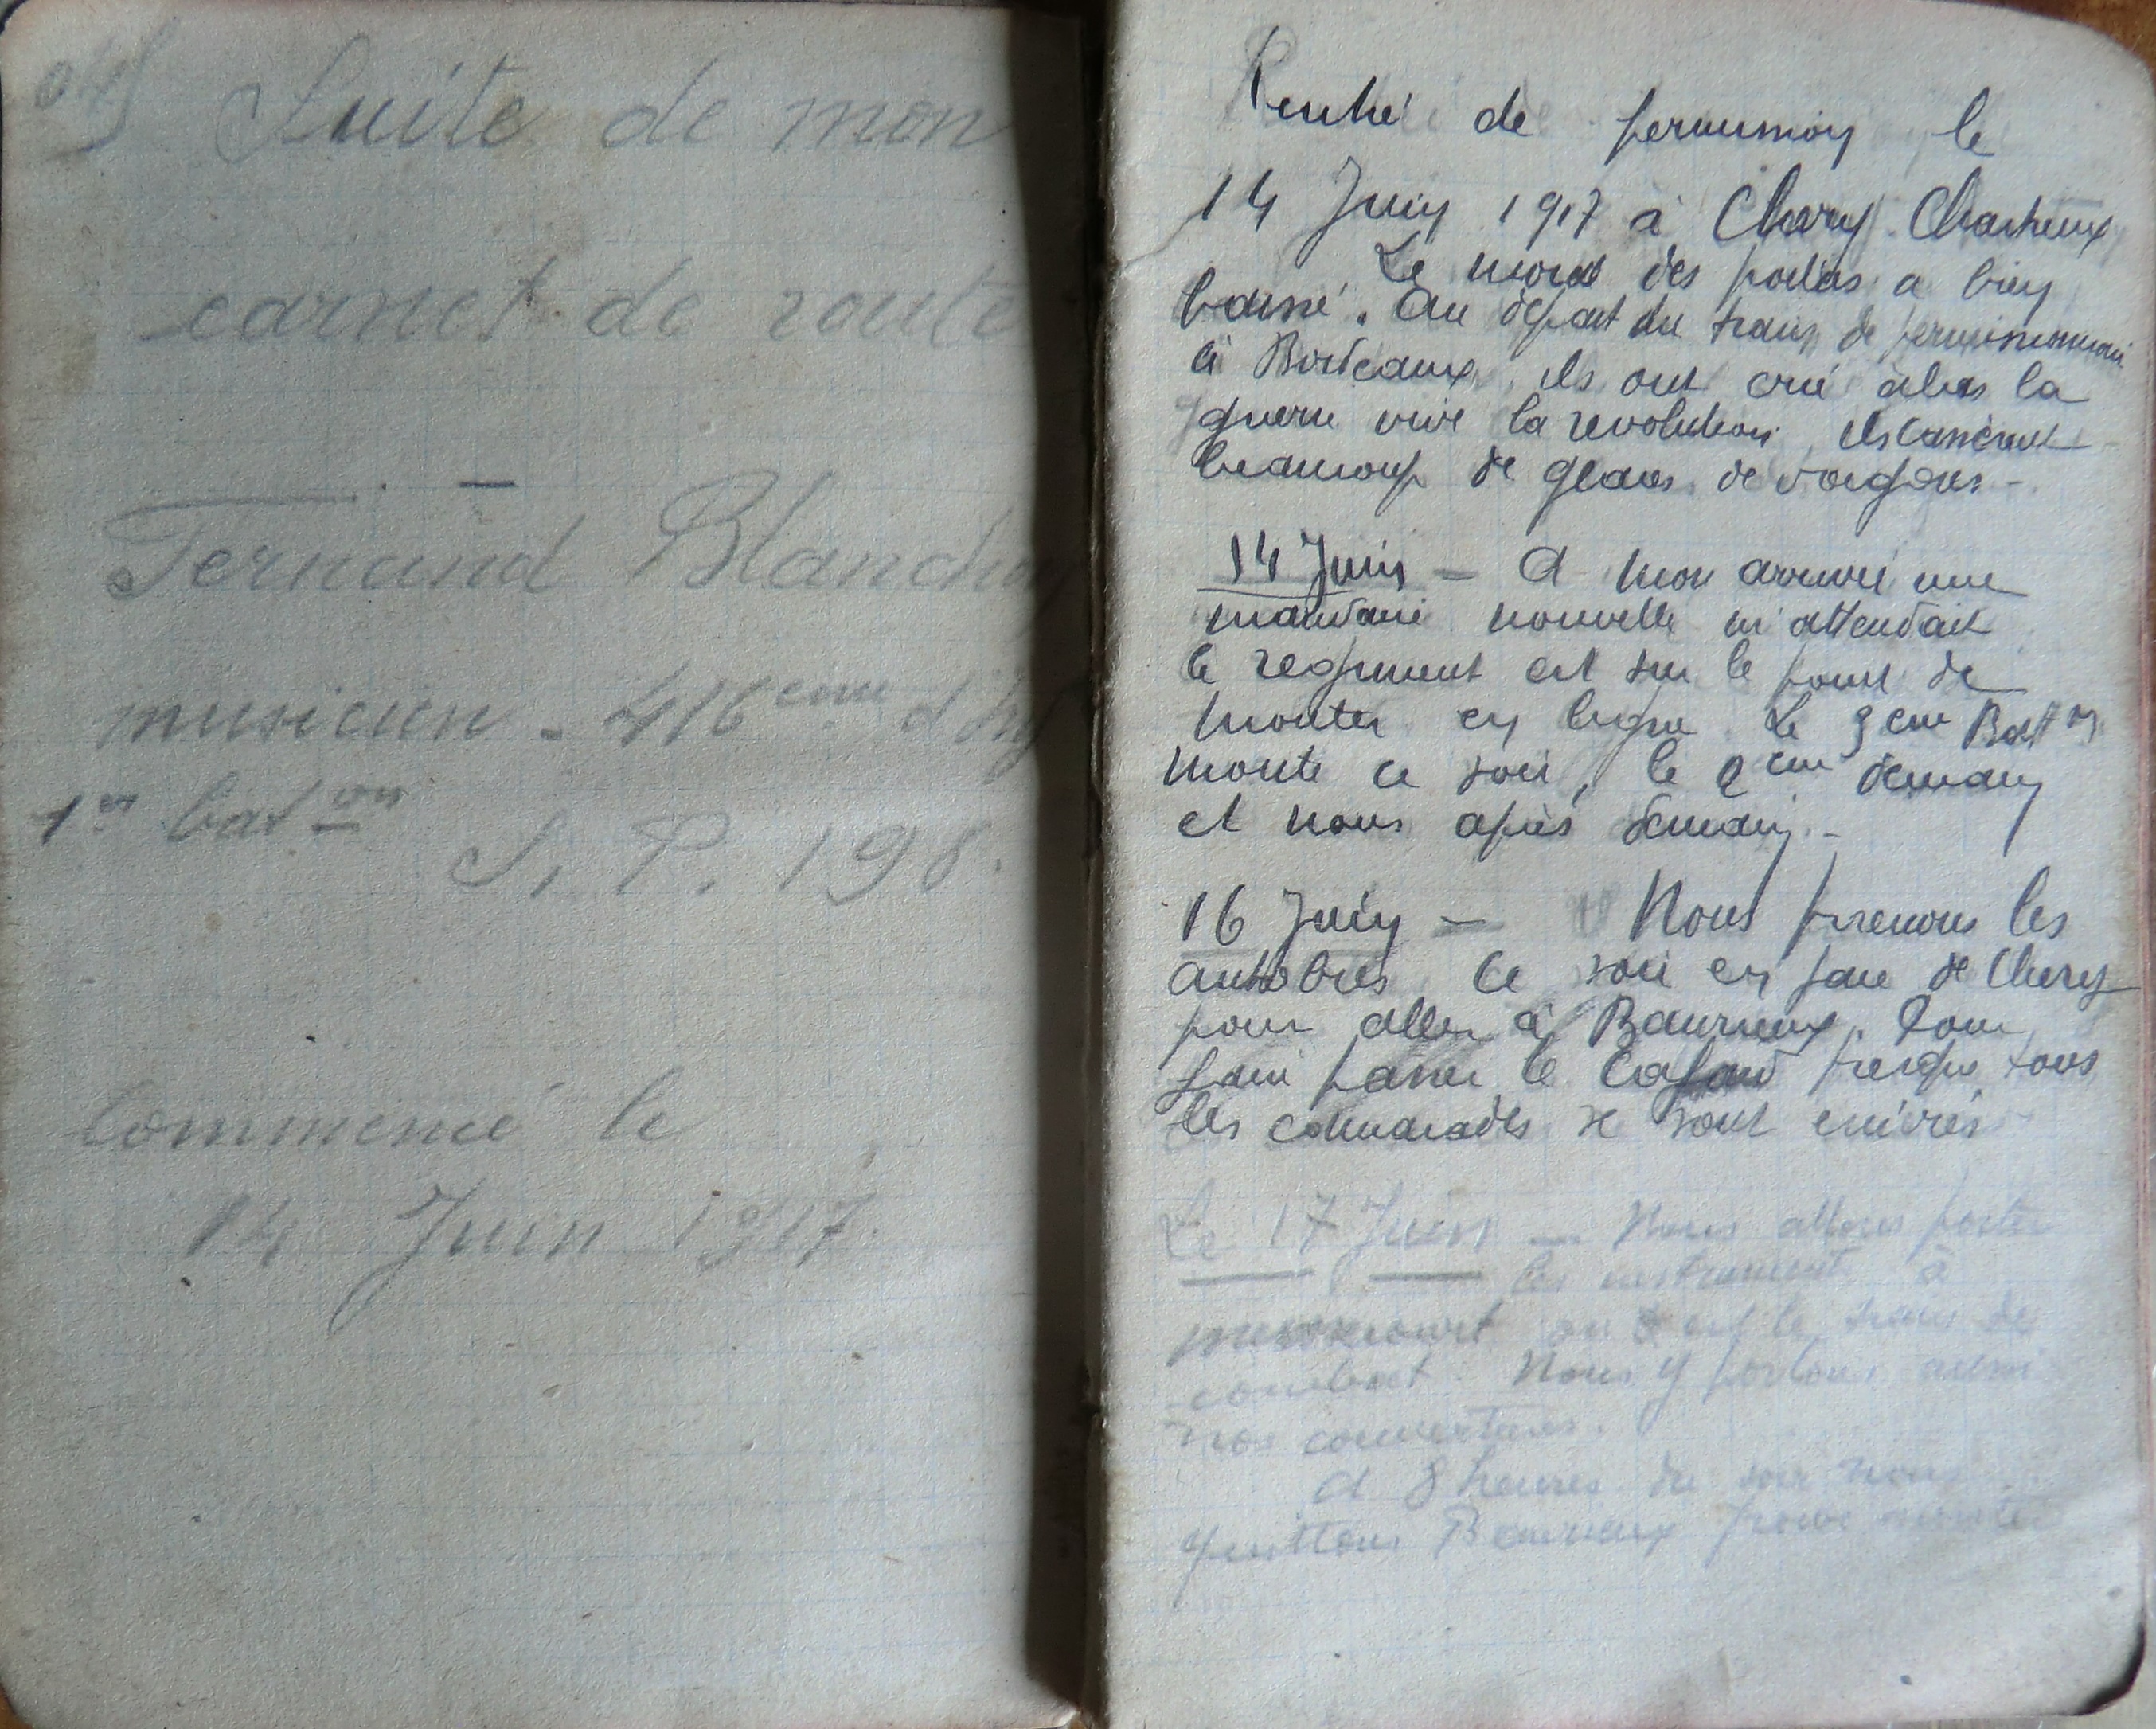 Suite de mon
carnet de route
Fernand Blanchoy
musicien - 416eme d'Inf
1er bat on
S. P. 198.
Commencé le
14 Juin 1917
Rentré de permission le
14 Juin 1917 à Chéry Chartreuve
Le moral des poilus a bien
baissé. Au départ du train de permissionnaires
à Bordeaux, ils ont crié à bas la
guerre vive la revolution ils cassèrent
beaucoup de glaces de wagons -
14 Juin - A mon arrivée une
mauvaise nouvelle m'attendait
le regiment est sur le point de
monter en ligne. Le 3eme Batton
monte ce soir, le 2eme demain
et nous après demain -
16 Juin - Nous prenons les
autobus ce soir en face de Chéry
pour aller à Beaurieux. Pour
faire passer le cafard presque tous
les camarades se sont enivrés
Le 17 Juin - Nous allons porter
les instruments à
où est le train de
combat. Nous y portons aussi
nos couvertures.
A 8 heures du soir nous
quittons Beaurieux pour monter